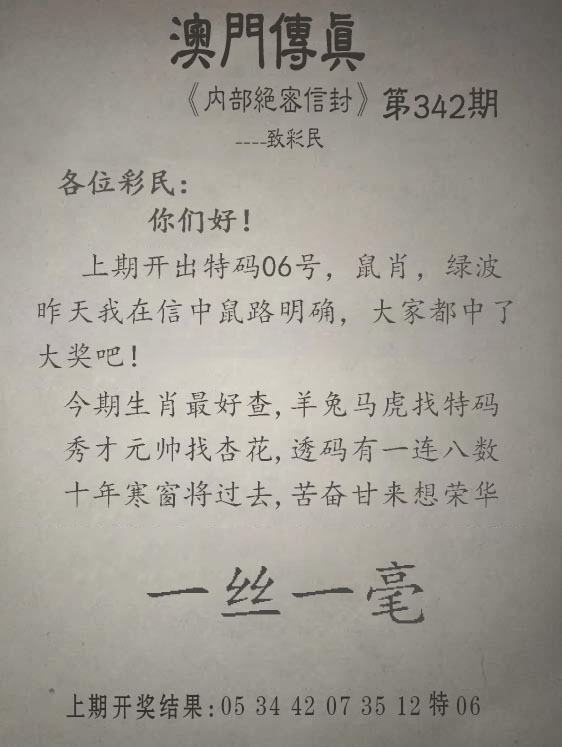 澳門傳真
《内部絕密信封》第342期
----致彩民
各位彩民：
你们好！
上期开出特码06号，鼠肖，绿波
昨天我在信中鼠路明确，大家都中了
大奖吧！
今期生肖最好查,羊兔马虎找特码
秀才元帅找杏花,透码有一连八数
十年寒窗将过去,苦奋甘来想荣华
一丝一毫
上期开奖结果:05 34 42 07 35 12 特 06